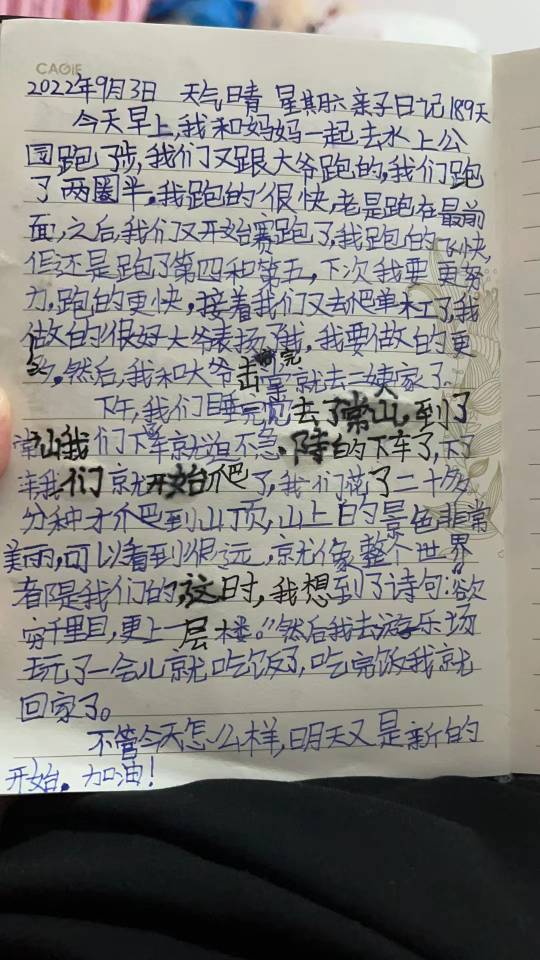 CAGIE
2022年9月3日 天气晴 星期六亲子日记189天
今天早上,我和妈妈一起去水上公
园跑了步,我们又跟大爷跑的,我们跑
了两圈半。我跑的很快,老是跑在最前
面,之后,我们又开始赛跑了,我跑的飞快
但还是跑了第四和第五,下次我要更努
力,跑的更快,接着我们又去把单杠了,我
做的很好大爷表扬了我,我要做的更
多。然后,我和大爷击掌完就去二姨家了。
下午,我们睡完觉去了常山,到了
常山我们下车就迫不急待的下车了,下了
车我们就开始爬了,我们花了二十多
分种才爬到山顶,山上的景色非常
美丽,可以看到很远,就像整个世界
都是我们的,这时,我想到了诗句:“欲
穷千里目,更上一层楼。”然后我去游乐场
玩了一会儿就吃饭了,吃完饭我就
回家了。
不管今天怎么样,明天又是新的
开始。加油!